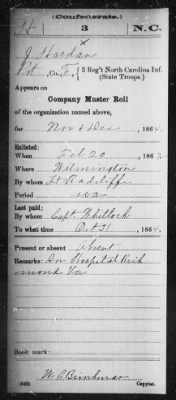 (Confederate.)
H 3 N.C.
J Hardan
Co. F, 3 Reg't North Carolina Inf.
(State Troops.)
Appears on
Company Muster Roll
of the organization named above,
for Nov & Dec, 1864.
Enlisted:
When Feb 20, 186
Where Wilmington
By whom Lt Radcliffe
Period war
Last paid:
By whom Capt Whitlock
To what time Oct 31, 1864.
Present or absent Absent
Remarks: In Hospital Rich
mond Va
Book mark:
(642) Copyist.